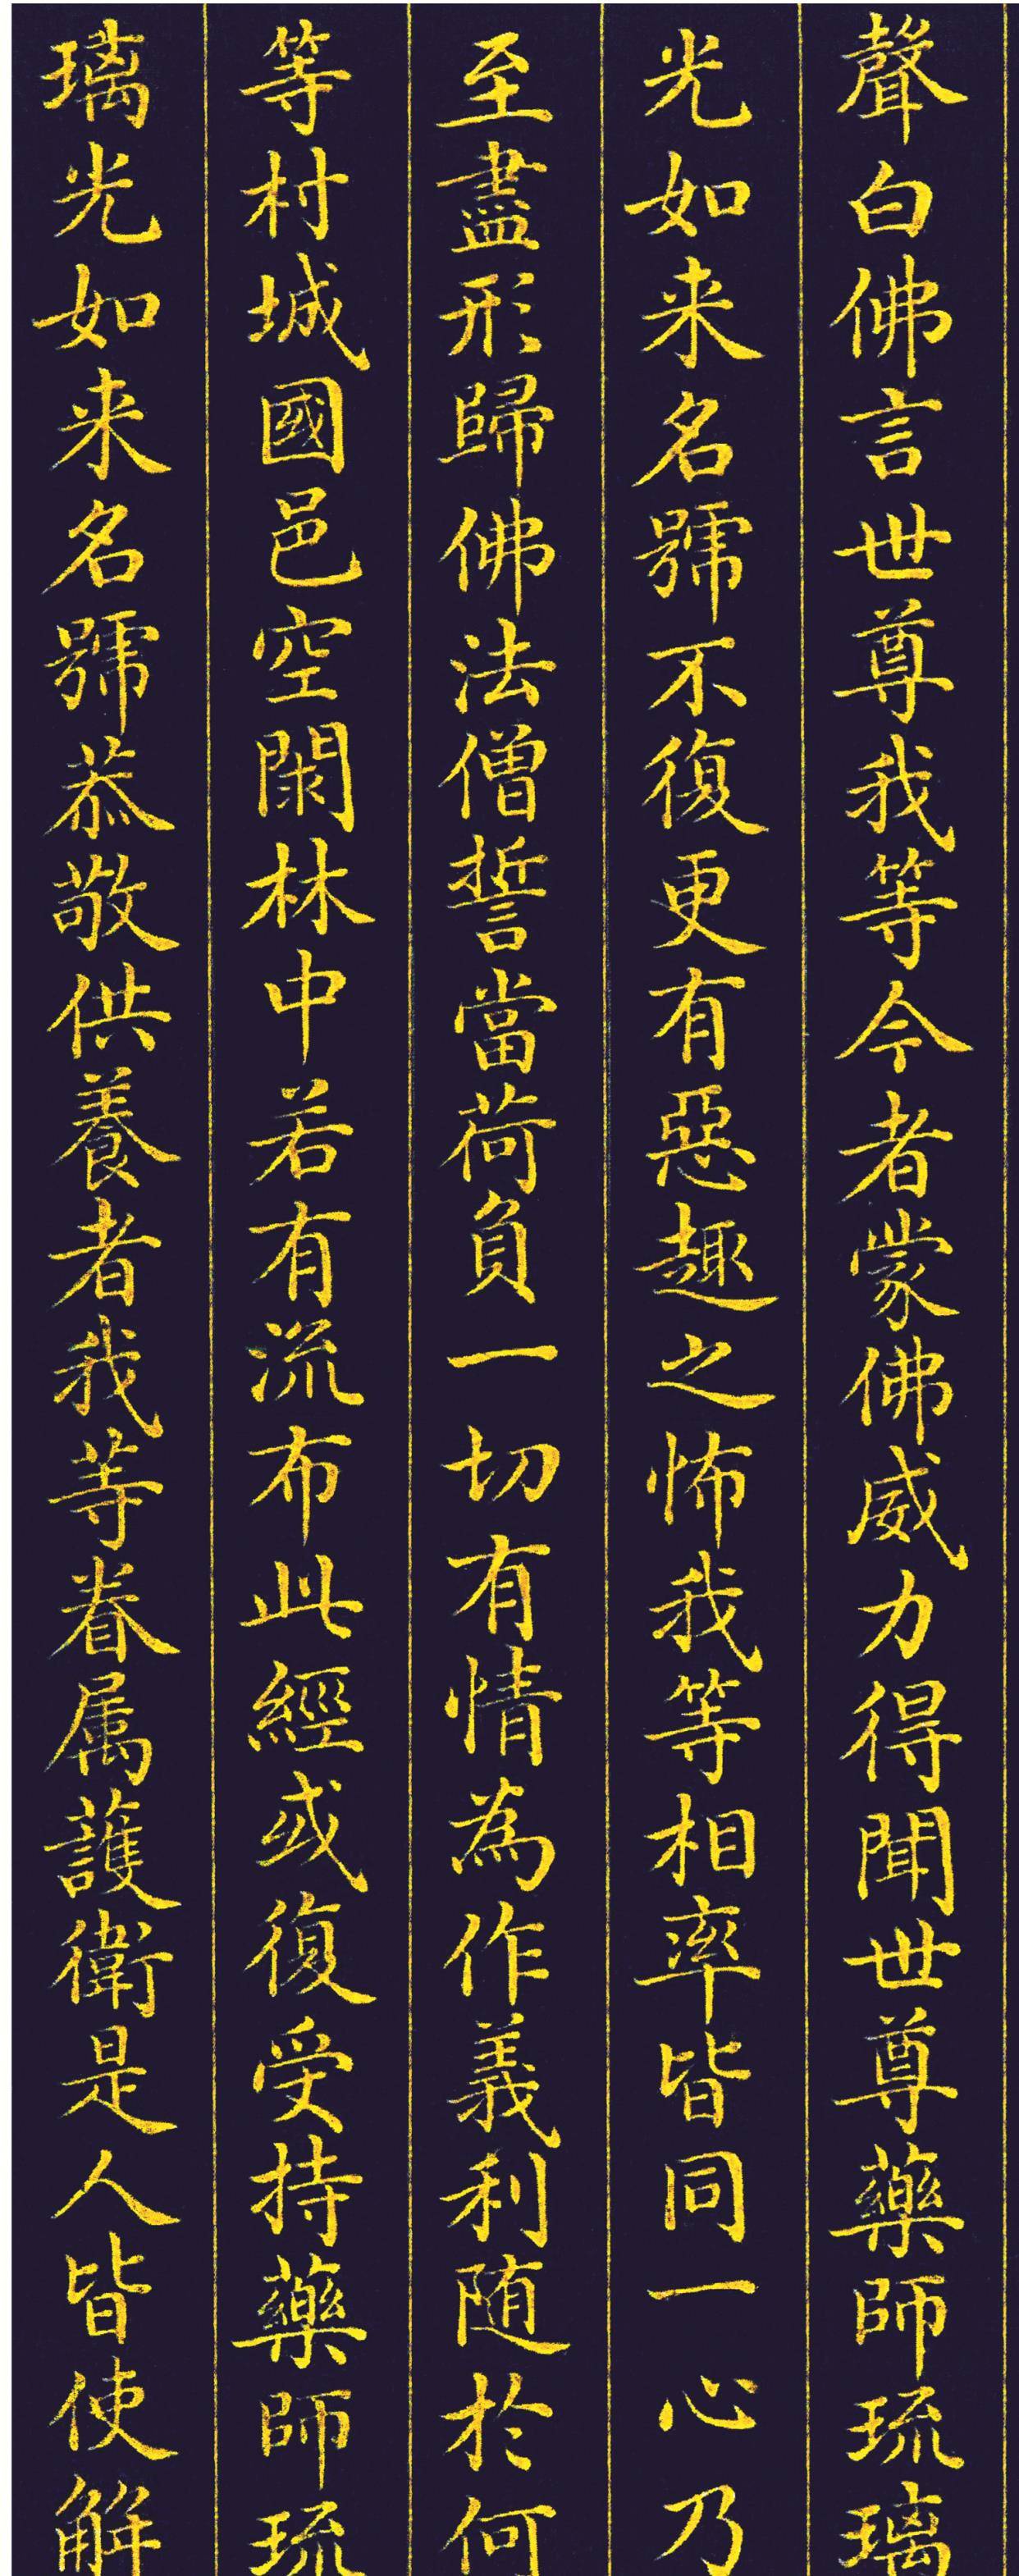 聲白佛言世尊我等今者蒙佛威力得聞世尊藥師琉璃
光如来名號不復更有惡趣之怖我等相率皆同一心乃
至盡形歸佛法僧誓當荷負一切有情為作義利随於何
等村城國邑空閑林中若有流布此經或復受持藥師琉
璃光如来名號恭敬供養者我等眷属護衛是人皆使解